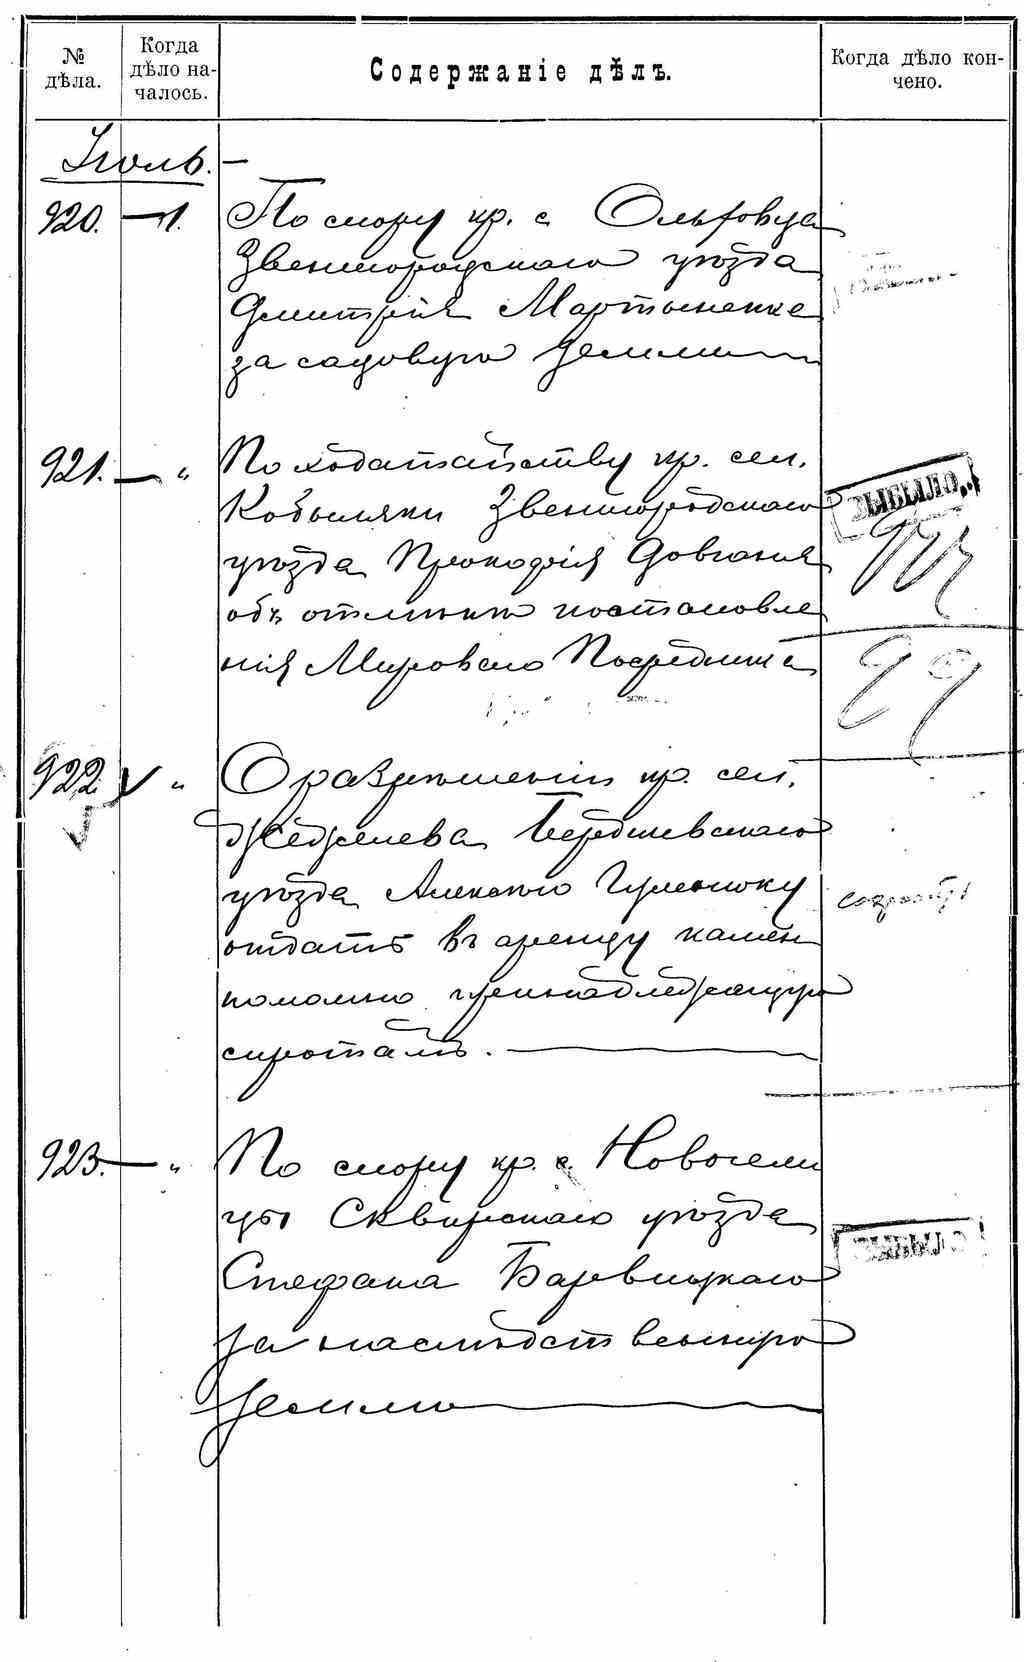 № дѣла.
Когда дѣло на-
чалось.
Содержаніе дѣлъ.
Когда дѣло кон-
чено.
Іюль. —
920. — 1. По спору кр. с. Ольховца
Звенигородскаго уѣзда
Дмитрія Мартыненка
за садовую землю
921. — „ По ходатайству кр. сел.
Кобыляки Звенигородскаго
уѣзда Прокофія Довганя
объ отмѣнѣ постановле
нія Мироваго Посредника
ВЫБЫЛО.
922. „ О разрѣшеніи кр. сел.
Бердичевскаго
уѣзда Алексѣю Гуменюку
отдать въ аренду камен
коломню принадлежащую
сиротамъ.
923. — „ По спору кр. с. Новосели
цы Сквирскаго уѣзда
Стефана Барвицкаго
за наслѣдственную
землю